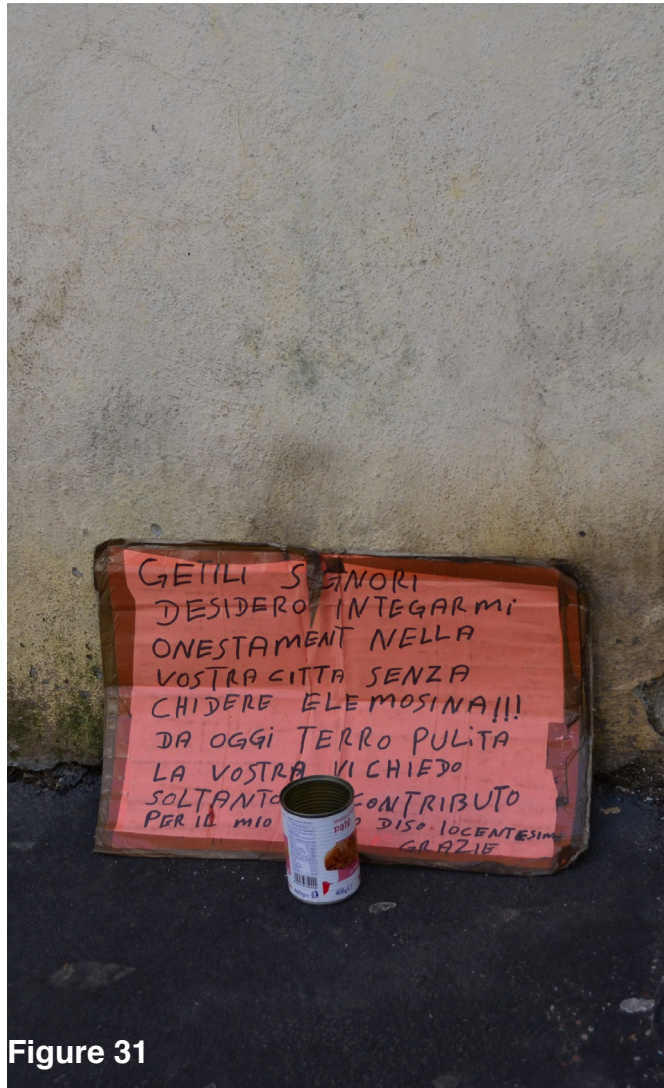 GETILI S GNORI
DESIDERO INTEGARMi
ONESTAMENT NELLA
VOSTRA CITTA SENZA
CHIDERE ELEMOSINA!!!
DA OGGi TERRO PULiTA
LA VOSTRA Vi CHiEDO
SOLTANTO CONTRIBUTO
PER IL MIO O DISO 10CENTESIMI
GRAZIE
paté
Figure 31